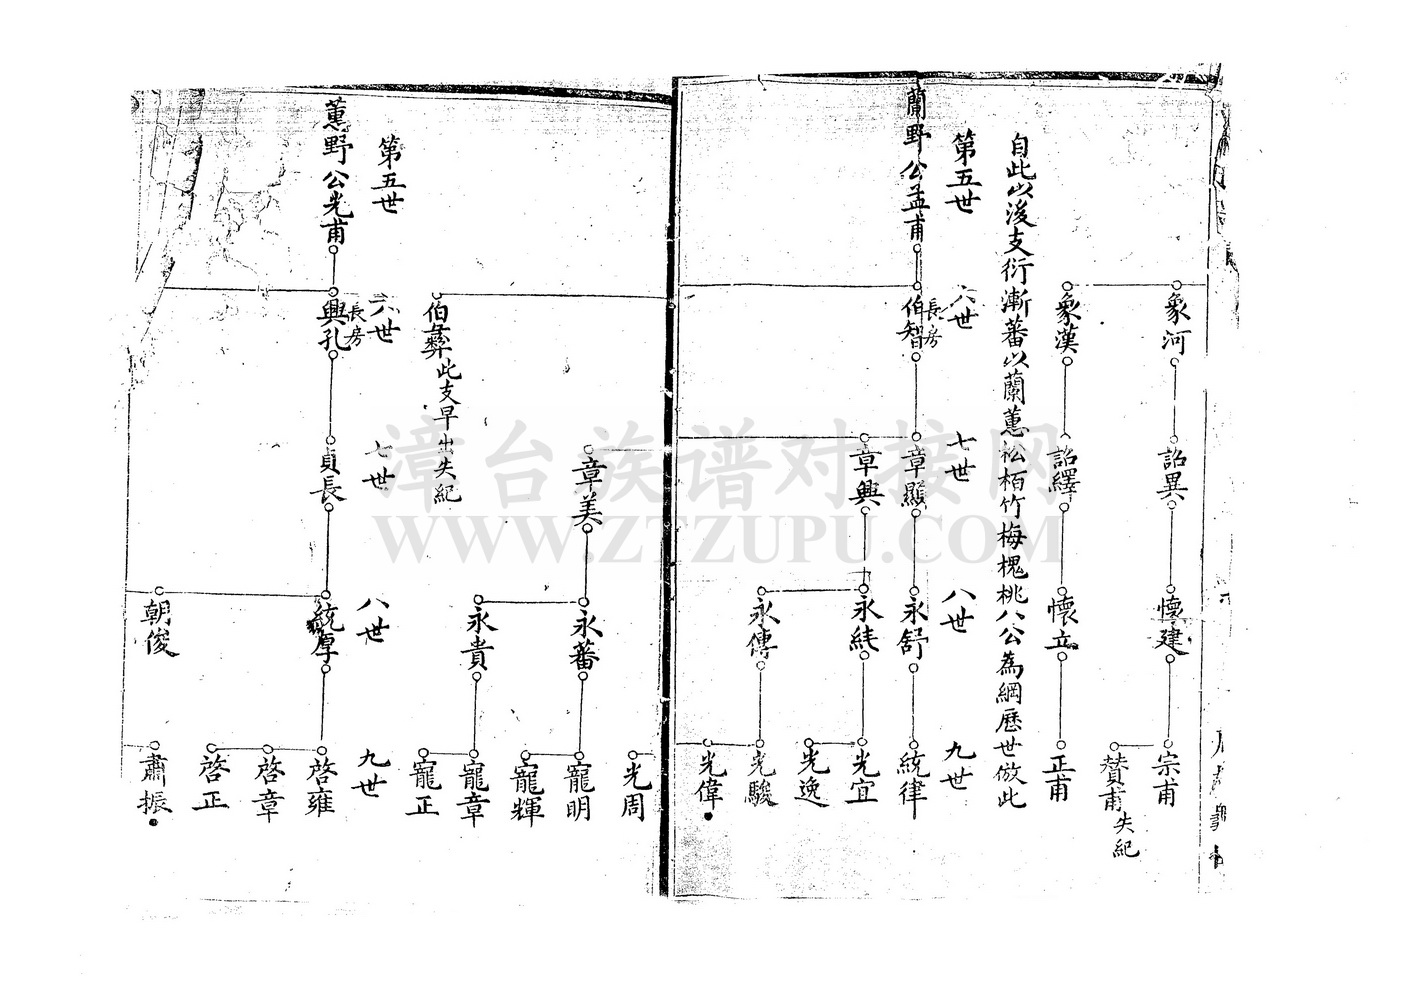 象河
詔異
懷建
宗甫
贊甫失紀
象漢
詔繹
懷立
正甫
自此以後支衍漸蕃以蘭蕙松栢竹梅槐桃八公為綱歷世倣此
第五世
六世
七世
八世
九世
蘭野公孟甫
長房
伯智
章顯
永舒
統律
章興
永絍
光宜
光逸
永傳
光駿
光偉
光周
章美
永蕃
寵明
寵輝
永貴
寵章
寵正
伯彝此支早出失紀
第五世
六世
七世
八世
九世
蕙野公光甫
長房
興孔
貞長
統厚
啓雍
啓章
啓正
朝俊
肅振
漳台族谱对接网
WWW.ZTZUPU.COM